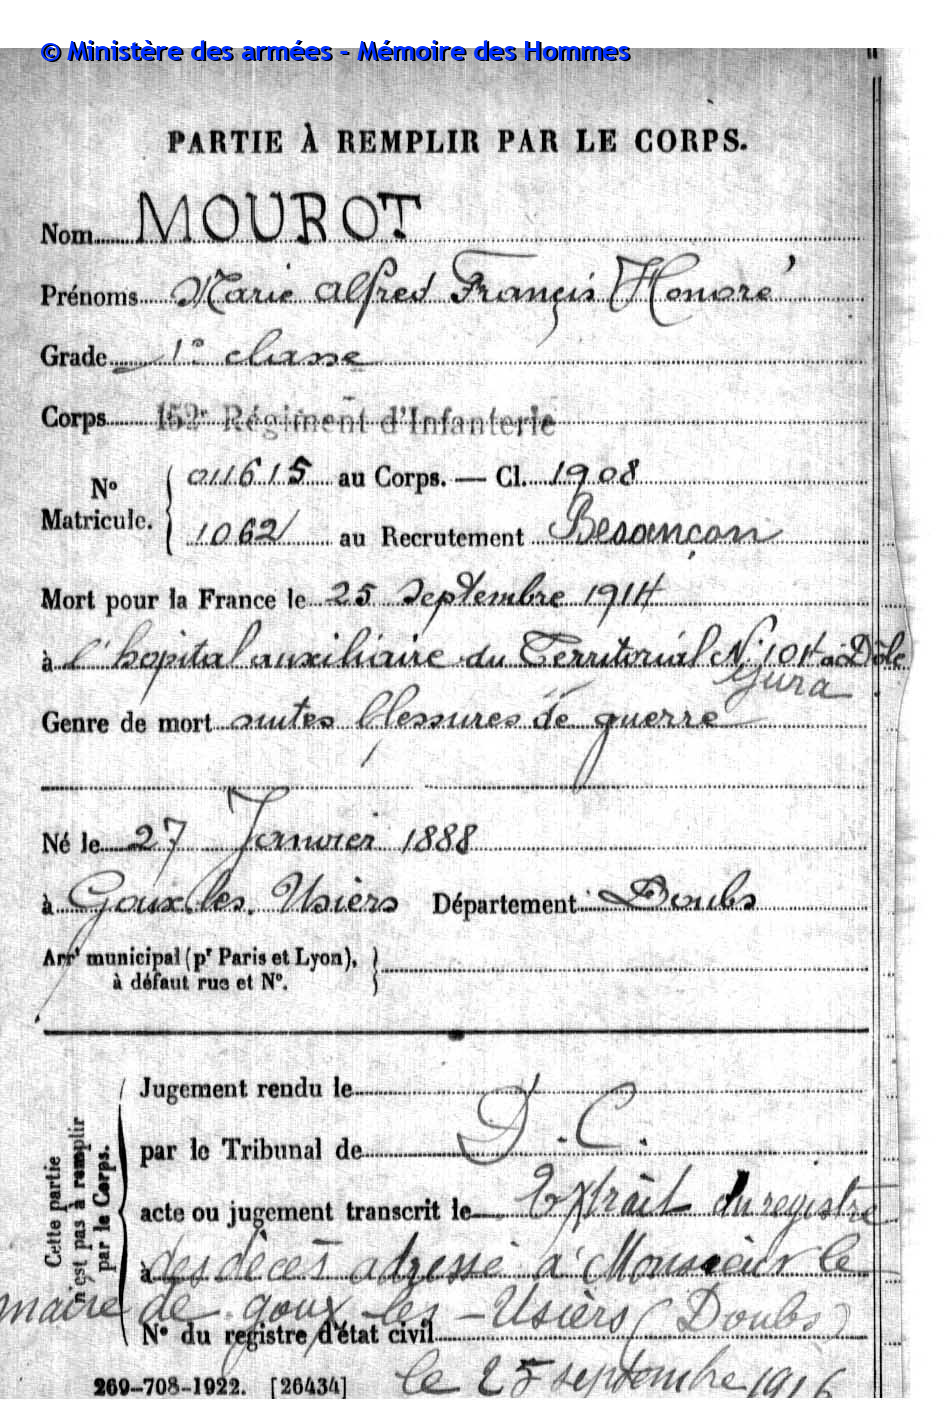 © Ministère des armées - Mémoire des Hommes
PARTIE À REMPLIR PAR LE CORPS.
Nom MOUROT
Prénoms Marie Alfred François Honoré
Grade 1e classe
Corps 152e Régiment d'Infanterie
No Matricule. { 011615 au Corps. — Cl. 1908
1062 au Recrutement Besançon
Mort pour la France le 25 Septembre 1914
à l'hopital auxiliaire du Territorial No 101 à Dôle
Jura
Genre de mort suites blessures de guerre
Né le 27 Janvier 1888
à Goux.les.Usiers Département Doubs
Arrt municipal (pr Paris et Lyon),
à défaut rue et No.
Cette partie
n'est pas à remplir
par le Corps.
Jugement rendu le
par le Tribunal de D.C.
acte ou jugement transcrit le Extrait du registre
à des décès adressé à Monsieur le
maire de goux-les-Usiers (Doubs)
No du registre d'état civil
le 25 septembre 1916
269-708-1922. [26434]